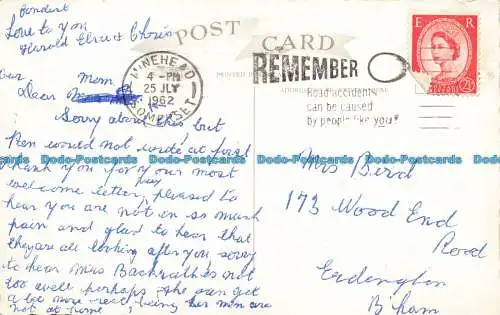 pendent
Love to you
Harold Elsie & Chris
POST CARD
MINEHEAD
4 - PM
25 JLY
1962
SOMERSET
REMEMBER
Road accidents
can be caused
by people like you
E R
Our
Dear Mom
Sorry about this but
Pen would not write at first
thank you for your most
welcome letter, pleased to
hear you are not in so much
pain and glad to hear that
they are all looking after you sorry
to hear Mrs not
too well perhaps she can get
a bit more rest being her men are
not at home
Mrs Bird
173 Wood End
Road
Erdington
B'ham
Dodo-Postcards Dodo-Postcards Dodo-Postcards Dodo-Postcards